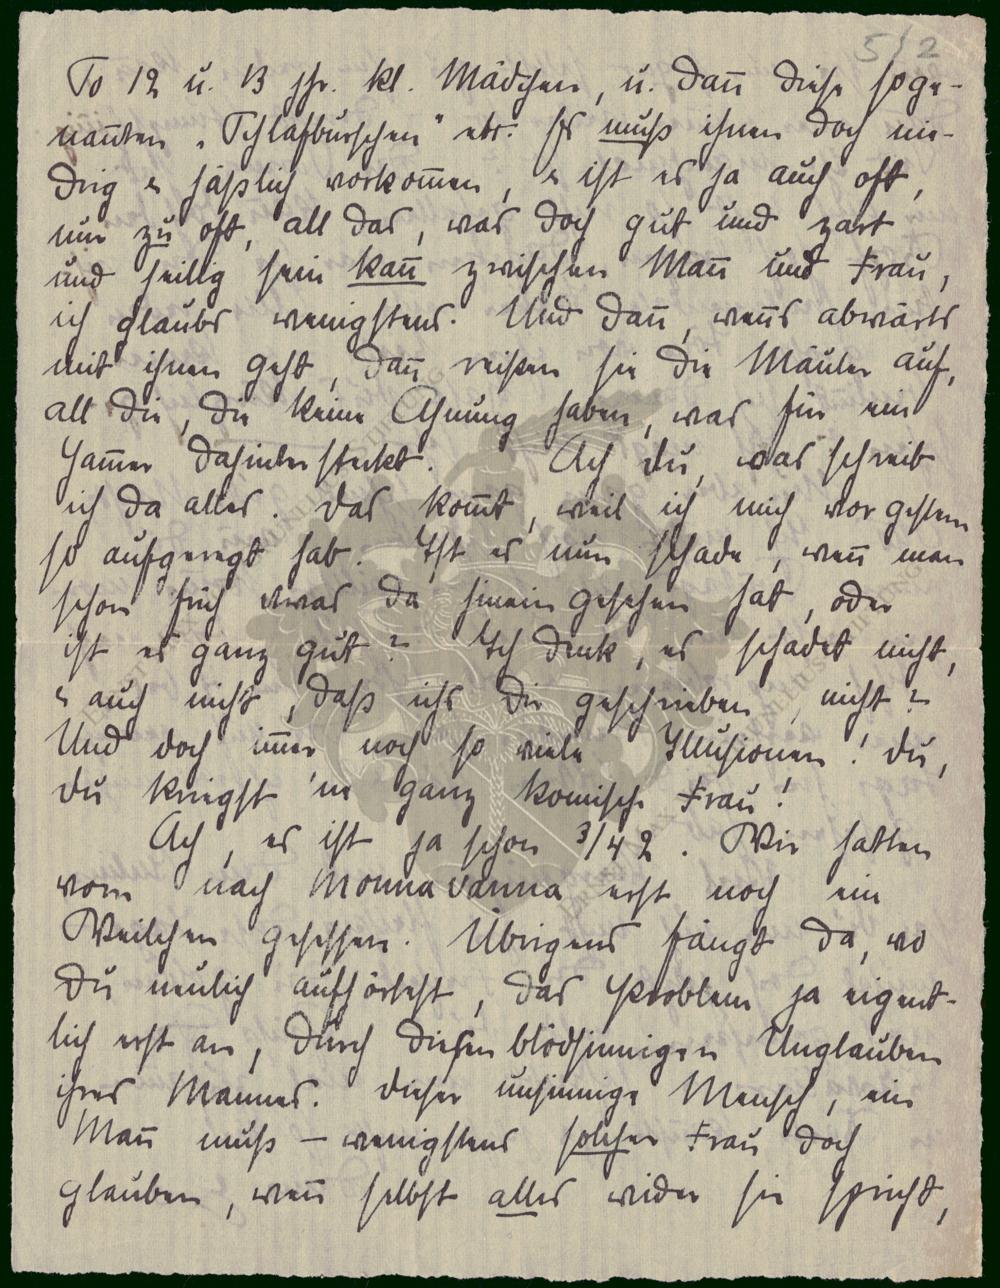 5/2
So 12 u. 13 jhr. kl. Mädchen, u. dañ diese soge-
nañten „Schlafburschen" etc. Es muß ihnen doch nie-
drig & häßlich vorkom̅en, & ist es ja auch oft,
nur zu oft, all das, was doch gut und zart
und heilig sein kañ zwischen Mañ und Frau,
ich glaubs wenigstens. Und dañ, weñs abwärts
mit ihnen geht, dañ reißen sie die Mäuler auf,
all die, die keine Ahnung haben, was für ein
Jam̅er dahintersteckt. Ach du, was schreib
ich da alles. Das kom̅t, weil ich mich vorgestern
so aufgeregt hab. Ist es nun schade, weñ man
schon früh etwas da hineingesehen hat, oder
ist es ganz gut? Ich denk, es schadet nicht,
& auch nicht, daß ichs dir geschrieben, nicht?
Und doch im̅er noch so viele Illusionen! Du,
du kriegst 'ne ganz komische Frau!
Ach, es ist ja schon 3/4 2. Wir hatten
vorn nach Monna Vanna erst noch ein
Weilchen gesessen. Übrigens fängt da, wo
du neulich aufhörtest, das Problem ja eigent-
lich erst an, durch diesen blödsinnigen Unglauben
ihres Mannes. Dieser unsinnige Mensch, ein
Mañ muß – wenigstens solcher Frau doch
glauben, weñ selbst alles wider sie spricht,